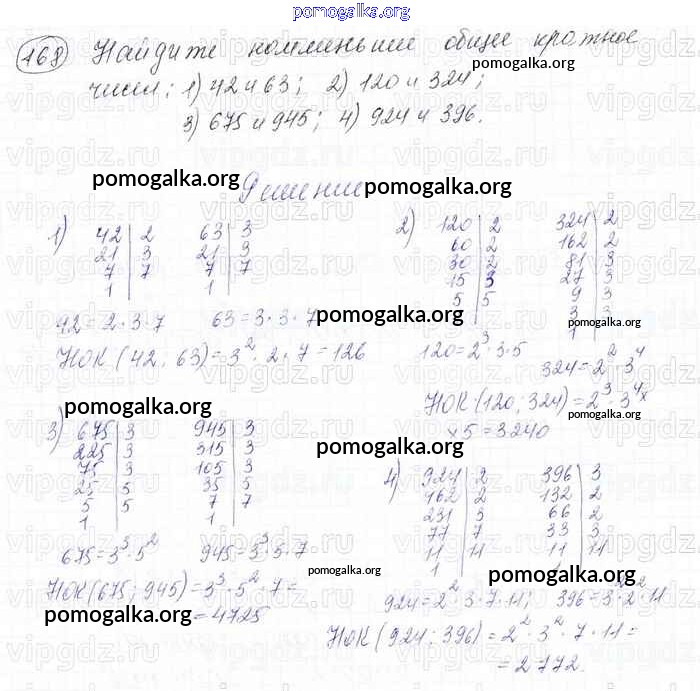 pomogalka.org
168) Найдите наименьшее общее кратное
pomogalka.org
чисел: 1) 42 и 63; 2) 120 и 324;
3) 675 и 945; 4) 924 и 396.
pomogalka.org Решение pomogalka.org
1)
42 | 2
21 | 3
7 | 7
1
63 | 3
21 | 3
7 | 7
1
42 = 2·3·7 63 = 3·3·7
pomogalka.org
НОК (42; 63) = 3²·2·7 = 126
2)
120 | 2
60 | 2
30 | 2
15 | 3
5 | 5
1
324 | 2
162 | 2
81 | 3
27 | 3
9 | 3
3 | 3
1
pomogalka.org
120 = 2³·3·5
324 = 2²·3⁴
НОК (120; 324) = 2³·3⁴×
×5 = 3240
pomogalka.org
pomogalka.org
3)
675 | 3
225 | 3
75 | 3
25 | 5
5 | 5
1
945 | 3
315 | 3
105 | 3
35 | 5
7 | 7
1
pomogalka.org
675 = 3³·5² 945 = 3³·5·7
НОК (675; 945) = 3³·5²·7 =
= 4725
pomogalka.org
pomogalka.org
4)
924 | 2
462 | 2
231 | 3
77 | 7
11 | 11
1
396 | 3
132 | 2
66 | 2
33 | 3
11 | 11
1
pomogalka.org
924 = 2²·3·7·11; 396 = 3²·2²·11
НОК (924; 396) = 2²·3²·7·11 =
= 2772.
pomogalka.org